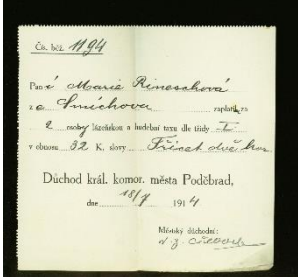 Čís. běž. 1194
Paní Marie Rineschová
z Smíchova zaplatil za
2 osoby lázeňskou a hudební taxu dle třídy I
v obnosu 32 K. slovy Třicet dvě kor
Důchod král. komor. města Poděbrad,
dne 18/7 1914
Městský důchodní: